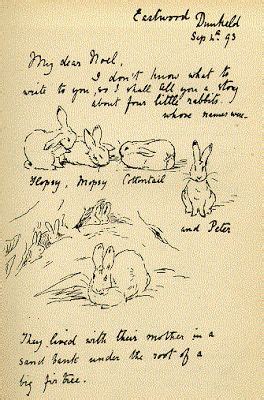 Eastwood Dunkeld
Sep 4th 93
My dear Noel,
I don't know what to
write to you, so I shall tell you a story
about four little rabbits.
whose names were
Flopsy, Mopsy Cottontail
and Peter
They lived with their mother in a
sand bank under the root of a
big fir tree.